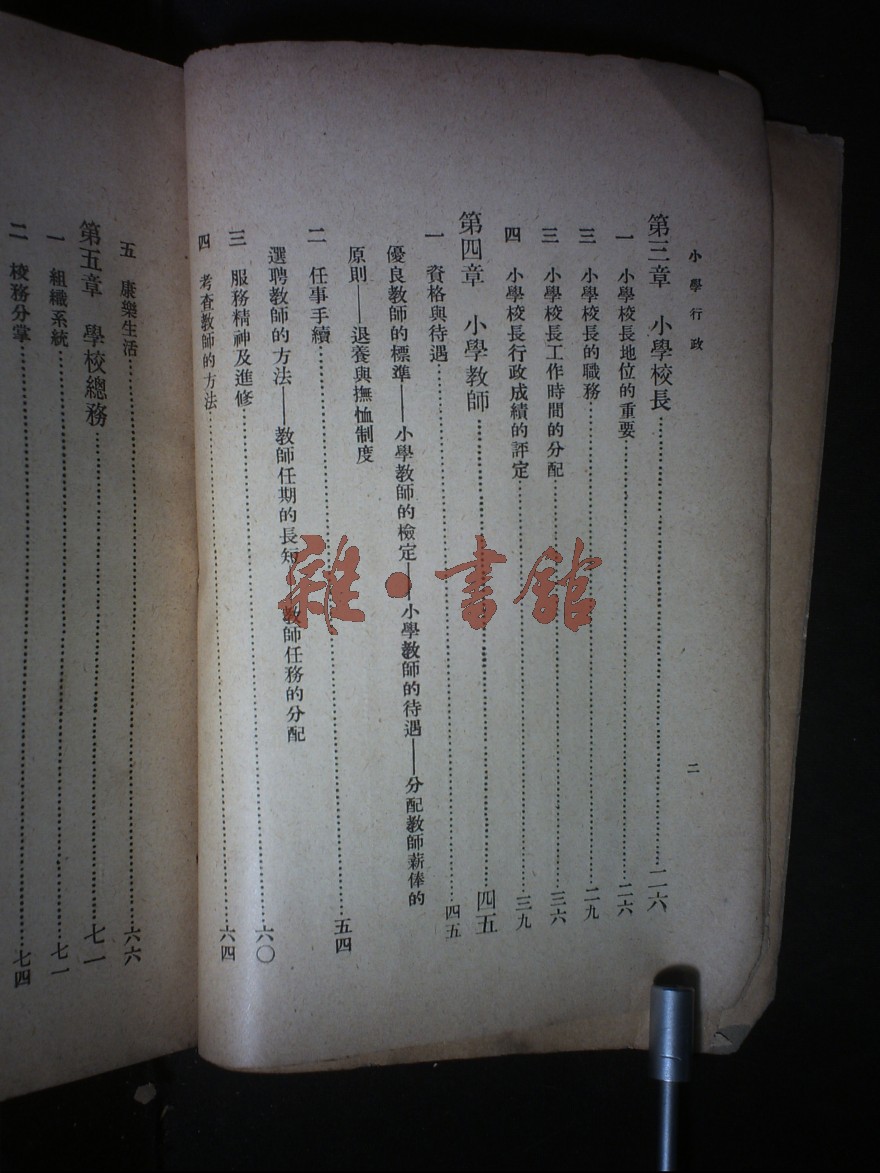 小學行政
二
第三章　小學校長……二六
一　小學校長地位的重要……二六
三　小學校長的職務……二九
三　小學校長工作時間的分配……三六
四　小學校長行政成績的評定……三九
第四章　小學教師……四五
一　資格與待遇……四五
優良教師的標準——小學教師的檢定——小學教師的待遇——分配教師薪俸的
原則——退養與撫恤制度
二　任事手續……五四
選聘教師的方法——教師任期的長短——教師任務的分配
三　服務精神及進修……六〇
四　考查教師的方法……六四
五　康樂生活……六六
第五章　學校總務……七一
一　組織系統……七一
二　校務分掌……七四
雜·書館